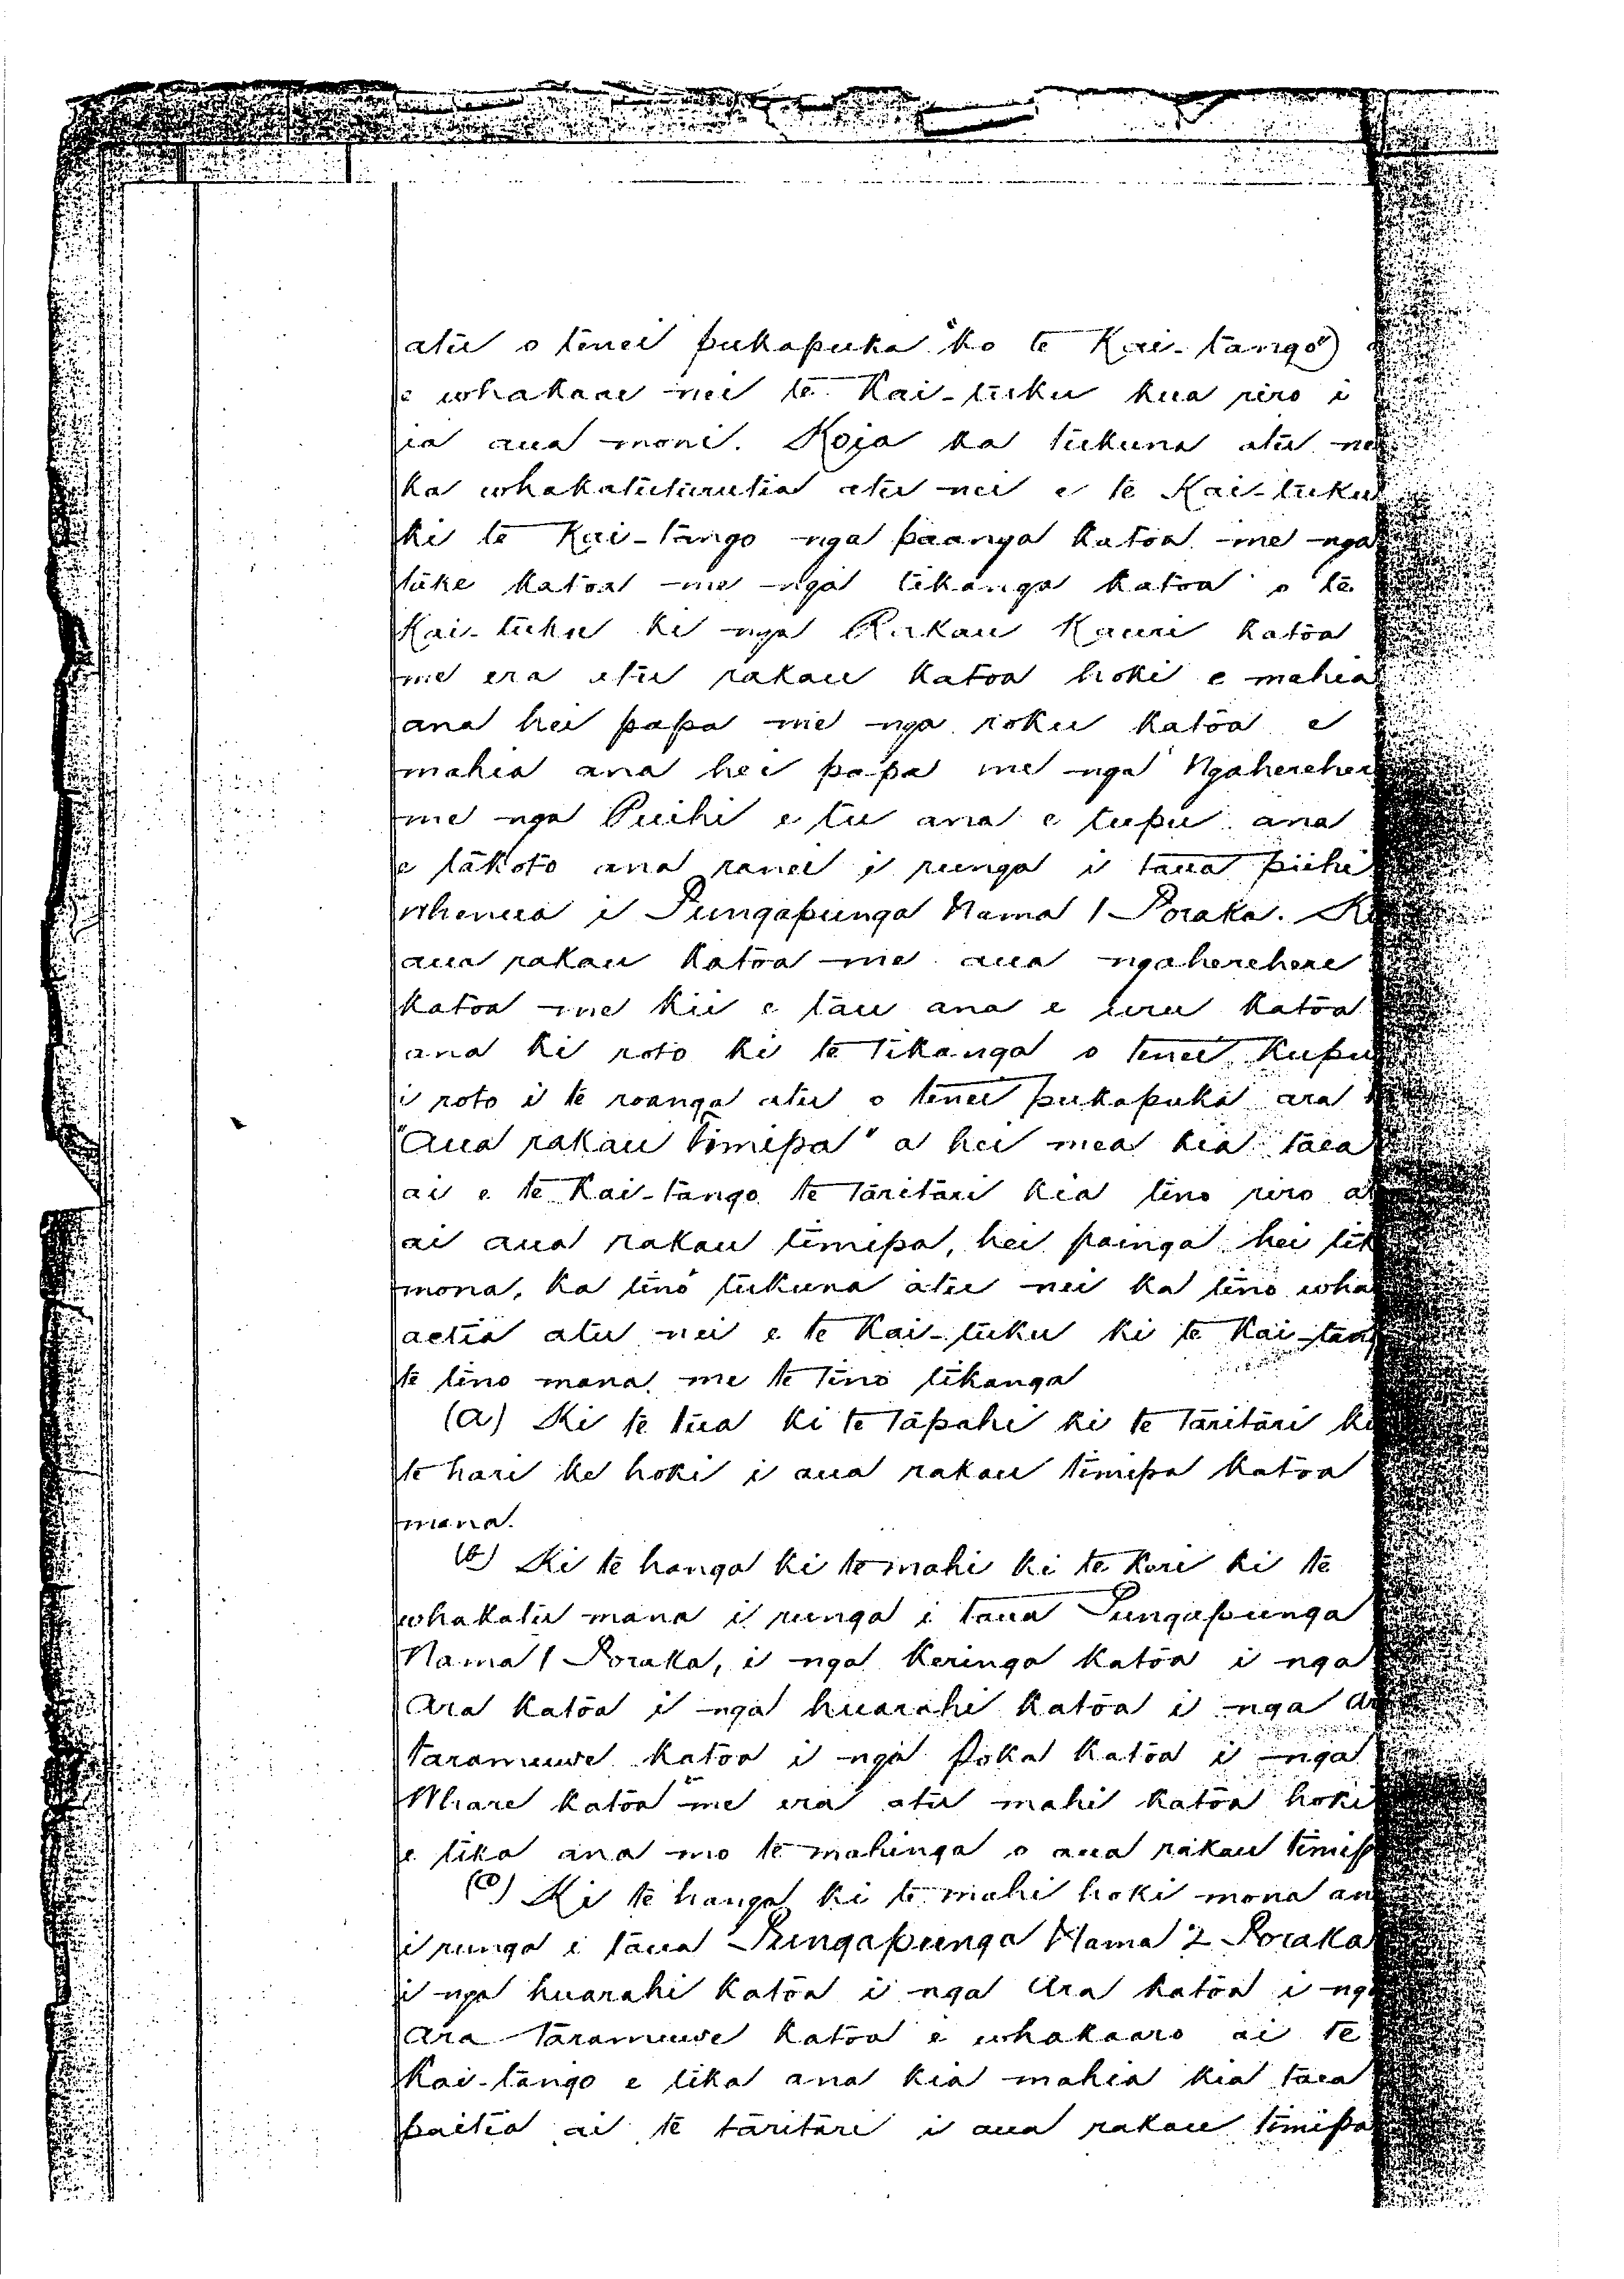 atu o tenei pukapuka "ko te Kai-tango")
e whakaae nei te Kai-tuku kua riro i
ia aua moni. Koia ka tukuna atu nei
ka whakatuturutia atu nei e te Kai-tuku
ki te Kai-tango nga paanga katoa me nga
take katoa me nga tikanga katoa o te
Kai-tuku ki nga Rakau Kauri katoa
me era atu rakau katoa hoki e mahia
ana hei papa me nga roku katoa e
mahia ana hei papa me nga Ngaherehere
me nga Puihi e tu ana e tupu ana
e takoto ana ranei i runga i taua piihi
whenua i Pungapunga Nama 1 Poraka. Ko
aua rakau katoa me aua ngaherehere
katoa me kii e tau ana e uru katoa
ana ki roto ki te tikanga o tenei kupu
i roto i te roanga atu o tenei pukapuka ara
"Aua rakau timipa" a hei mea kia taea
ai e te Kai-tango te taritari kia tino riro
ai aua rakau timipa, hei painga hei tik
mona, ka tino tukuna atu nei ka tino wha
aetia atu nei e te Kai-tuku ki te Kai-tang
te tino mana me te tino tikanga
(a) Ki te tua ki te tapahi ki te taritari ki
te hari ke hoki i aua rakau timipa katoa
mana.
(b) Ki te hanga ki te mahi ki te keri ki te
whakatu mana i runga i taua Pungapunga
Nama 1 Poraka, i nga keringa katoa i nga
Ara katoa i nga huarahi katoa i nga Ar
taramuwe katoa i nga poka katoa i nga
Whare katoa me era atu mahi katoa hoki
e tika ana mo te mahinga o aua rakau timip
(c) Ki te hanga ki te mahi hoki mona an
i runga i taua Pungapunga Nama 2 Poraka
i nga huarahi katoa i nga Ara katoa i nga
Ara Taramuwe katoa e whakaaro ai te
Kai-tango e tika ana kia mahia kia taea
paitia ai te taritari i aua rakau timipa